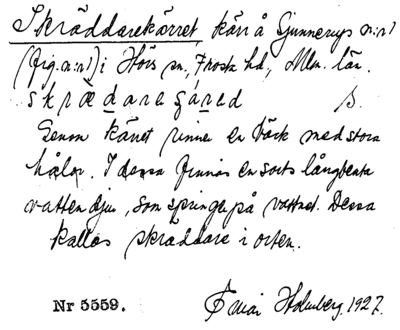 Skräddarekärret kärr å Gunnarps n:r 1
(fig. n:r 1) i Hörs sn., Frosta hd., Mlm. län.
skrædaregäred S.
Genom kärret rinner en bäck med stora
hålor. I dessa finnas en sorts långbenta
vattendjur, som springa på vattnet. Dessa
kallas skräddare i orten.
Nr 5559. Holmberg. 1927.